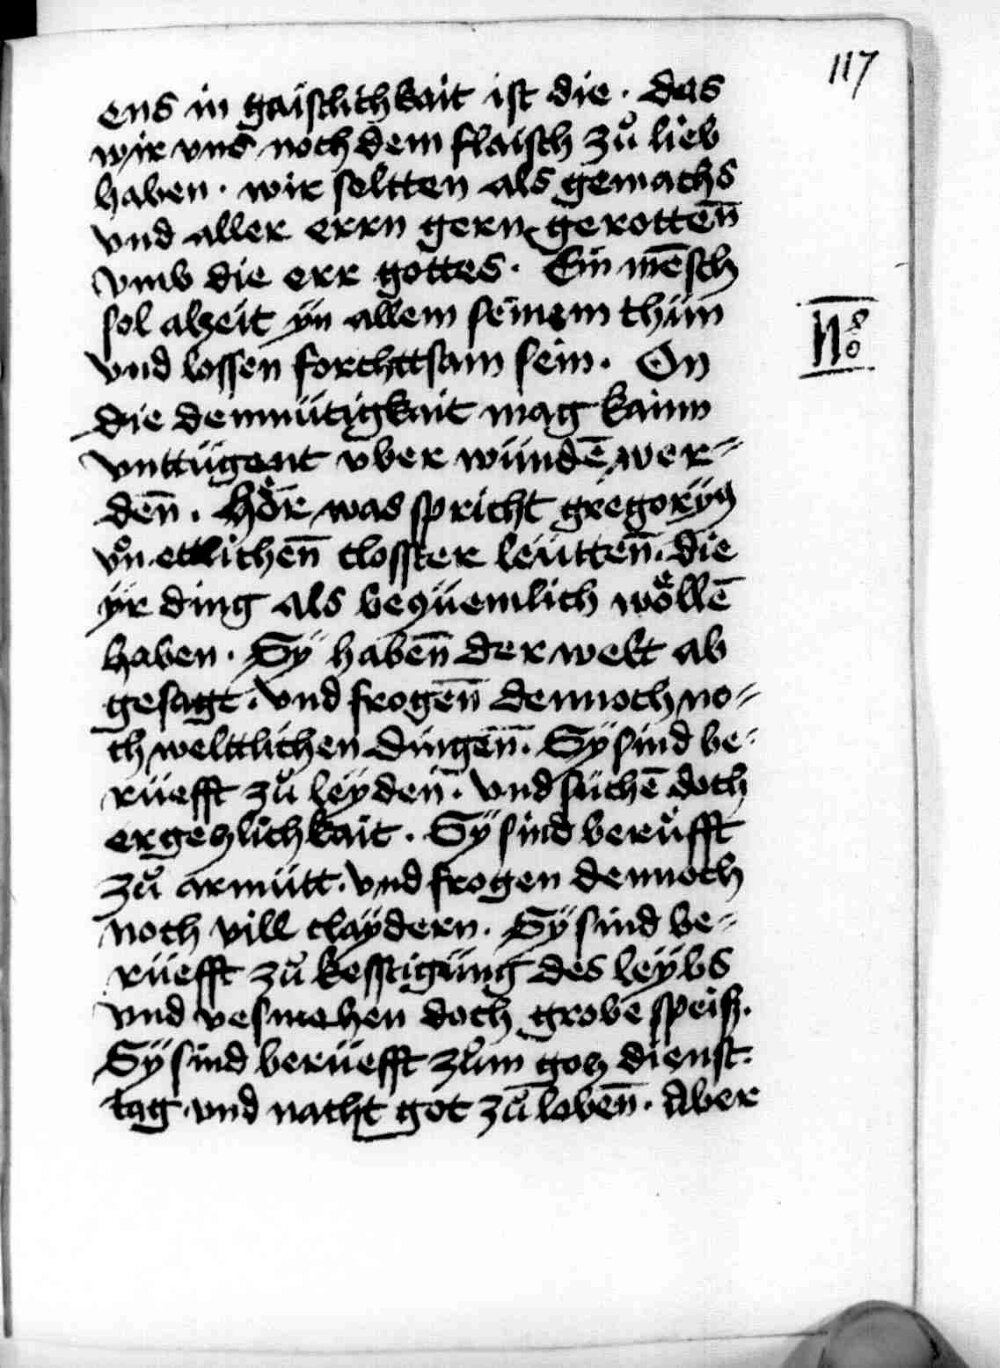 117
ens in gaistlichkait ist die · das
wir vns noch dem flaisch zů lieb
haben · wir soltten als gemachs
vnd aller errn gern gerottēn̄
vmb die err gottes · Ein mēsch
sol alzeit yn allem seinem thün
vnd lossen forchttsam sein · On
die demmütigkait mag kainn
vnttügent vber wündē wer⸗
den̄ . Hör was spricht gregorÿꝰ
vön ettlichen̄ closster leütten̄ . die
ÿr ding als beqüemlich wöllē
haben · Sÿ haben̄ der welt ab
gesagt . vnd frogen̄ dennoch no⸗
ch welttlichen dingen̄ . Sÿ sind be⸗
rüefft zů leÿden̄ . vnd süchē doch
ergezlichkait . Sÿ sind berüfft
zů armütt . vnd frogen dennoch
noch vill claÿdern . Sÿ sind be⸗
rüefft zů kesstigüng des leÿbs
vnd vesmahen doch grobe speiß .
Sÿ sind berüefft zům goz dienst .
tag vnd nacht got zů loben̄ . Aber